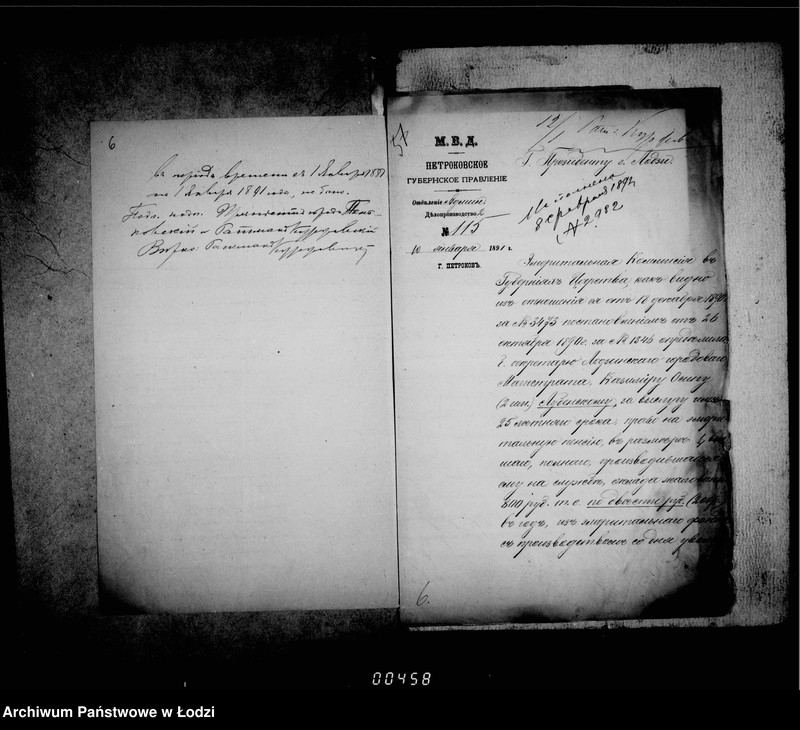 6
въ періодъ времени съ 1 Января 1881
по 1 Января 1891 года, не было.
Подл. подп. Президентъ города Пень-
ковскій и Ратманъ Курдовскій
Вѣрно: Ратманъ
М. В. Д.
ПЕТРОКОВСКОЕ
ГУБЕРНСКОЕ ПРАВЛЕНІЕ
Отдѣленіе
Дѣлопроизводство 2
№ 115
10 января 1891 г.
Г. ПЕТРОКОВЪ.
12/1
Г. Президенту г. Лодзи
Исполнено
8 февраля 1891
№ 2982
Эмеритальная Коммисія въ
Губерніяхъ Царства, какъ видно
изъ отношенія ея отъ 18 декабря 1890 г.
за № 5473 постановленіемъ отъ 26
октября 1890 г. за № 1346 опредѣлила
б. секретарю Лодзинскаго городоваго
Магистрата, Казиміру
(2 им.) за выслугу
25 лѣтняго срока, право на эмери-
тальную пенсію, въ размѣрѣ
полнаго, производившагося
ему на службѣ, оклада жалованья
800 руб. т. е. по двѣсти руб. (200 р.)
въ годъ, изъ эмеритальнаго фонда
съ производствомъ со дня
6.
00458
Archiwum Państwowe w Łodzi